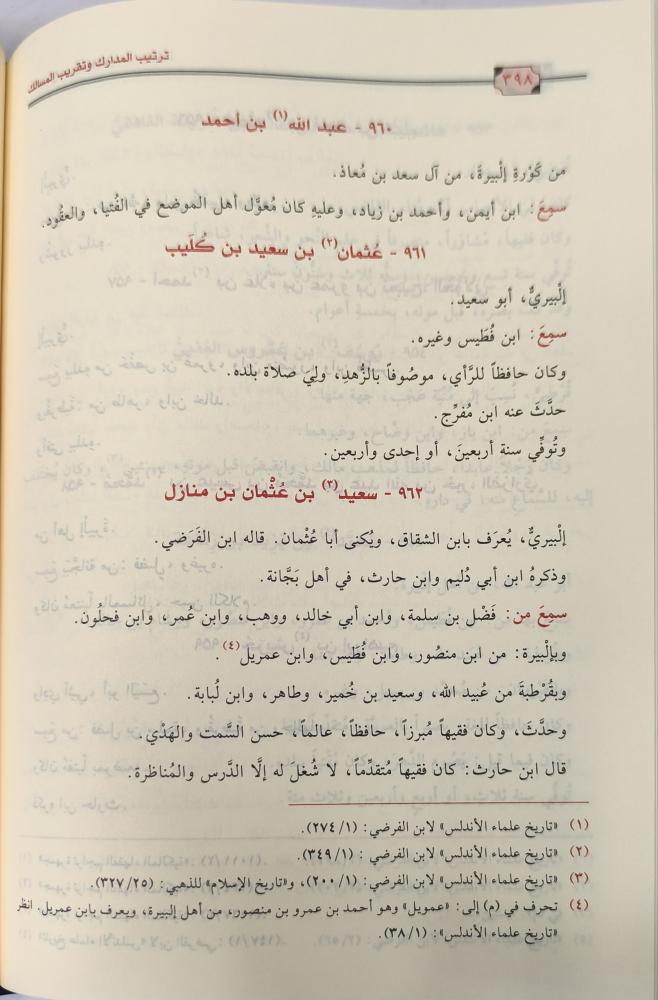 ترتيب المدارك وتقريب المسالك
٣٩٨
٩٦٠ - عبد الله(١) بن أحمد
من كَوْرةِ إلْبيرةَ، من آل سعد بن مُعاذ.
سمِعَ: ابن أيمن، وأحمد بن زياد، وعليهِ كان مُعوَّل أهل الموضع في الفُتيا، والعقُود.
٩٦١ - عُثمان(٢) بن سعيد بن كُلَيب
إلْبيريٌّ، أبو سعيد.
سمِعَ: ابن فُطَيس وغيره.
وكان حافظاً للرَّأي، موصُوفاً بالزُّهدِ، ولِيَ صلاة بلده.
حدَّثَ عنه ابن مُفرِّج.
وتُوفِّي سنة أربعينَ، أو إحدى وأربعين.
٩٦٢ - سعيد(٣) بن عُثْمان بن منازل
إلْبيريٌّ، يُعرَف بابن الشقاق، ويُكنى أبا عُثْمان. قاله ابن الفَرَضي.
وذكرهُ ابن أبي دُليم وابن حارث، في أهل بَجَّانة.
سمِعَ من: فَضْل بن سلمة، وابن أبي خالد، ووهب، وابن عُمر، وابن فحلُون.
وبإلْبيرة: من ابن منصُور، وابن فُطَيس، وابن عمريل(٤).
وبقُرْطبةَ من عُبيد الله، وسعيد بن خُمير، وطاهر، وابن لُبابة.
وحدَّثَ، وكان فقيهاً مُبرزاً، حافظاً، عالماً، حسن السَّمت والهَدْي.
قال ابن حارث: كان فقيهاً مُتقدِّماً، لا شُغلَ له إلَّا الدَّرس والمُناظرة.
(١) «تاريخ علماء الأندلس» لابن الفرضي: (٢٧٤/١).
(٢) «تاريخ علماء الأندلس» لابن الفرضي : (٣٤٩/١).
(٣) «تاريخ علماء الأندلس» لابن الفرضي: (٢٠٠/١)، و«تاريخ الإسلام» للذهبي: (٣٢٧/٢٥).
(٤) تحرف في (م) إلى: «عمويل» وهو أحمد بن عمرو بن منصور، من أهل إلبيرة، ويعرف بابن عمريل. انظر
«تاريخ علماء الأندلس»: (٣٨/١).